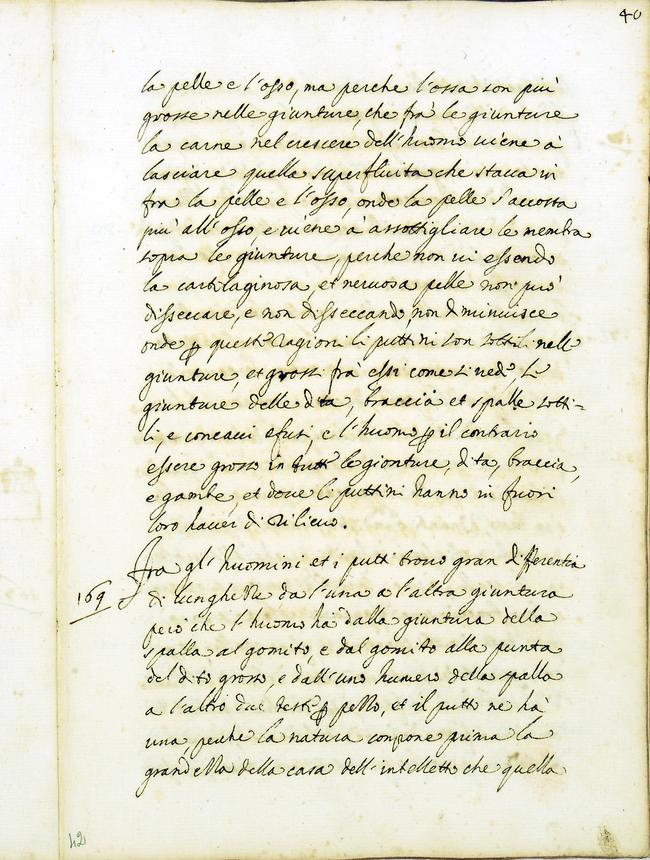 40
la pelle e l'osso, ma perche l'ossa son più
grosse nelle giunture, che frà le giunture
la carne nel crescere dell'huomo uiene à
lasciare quella superfluita che staua in
fra la pelle e l'osso, onde la pelle s'accosta
più all'osso e uiene à assottigliare le membra
sopra le giunture, perche non ui essendo
la cartilaginosa, et neruosa pelle non può
disseccare, e non disseccando, non diminuisce
onde ꝑ queste ragioni li puttini son sottili nelle
giunture, et grossi frà essi come si uede, le
giunture delle dita, braccia et spalle sotti-
li, e concaui e fusi, e l'huomo ꝑ il contrario
essere grosso in tutte le gionture, dita, braccia,
e gambe, et doue li puttini hanno in fuori
loro hauer di rilieuo.
Fra gl'huomini et i putti trouo gran differentia
169
di lunghezze da l'una a l'altra giuntura
però che l'huomo hà dalla giuntura della
spalla al gomito, e dal gomito alla punta
del dito grosso, e dall'uno humero della spalla
a l'altro due teste ꝑ pezzo, et il putto ne hà
una, perche la natura compone prima la
grandezza della casa dell'intelletto che quella
42